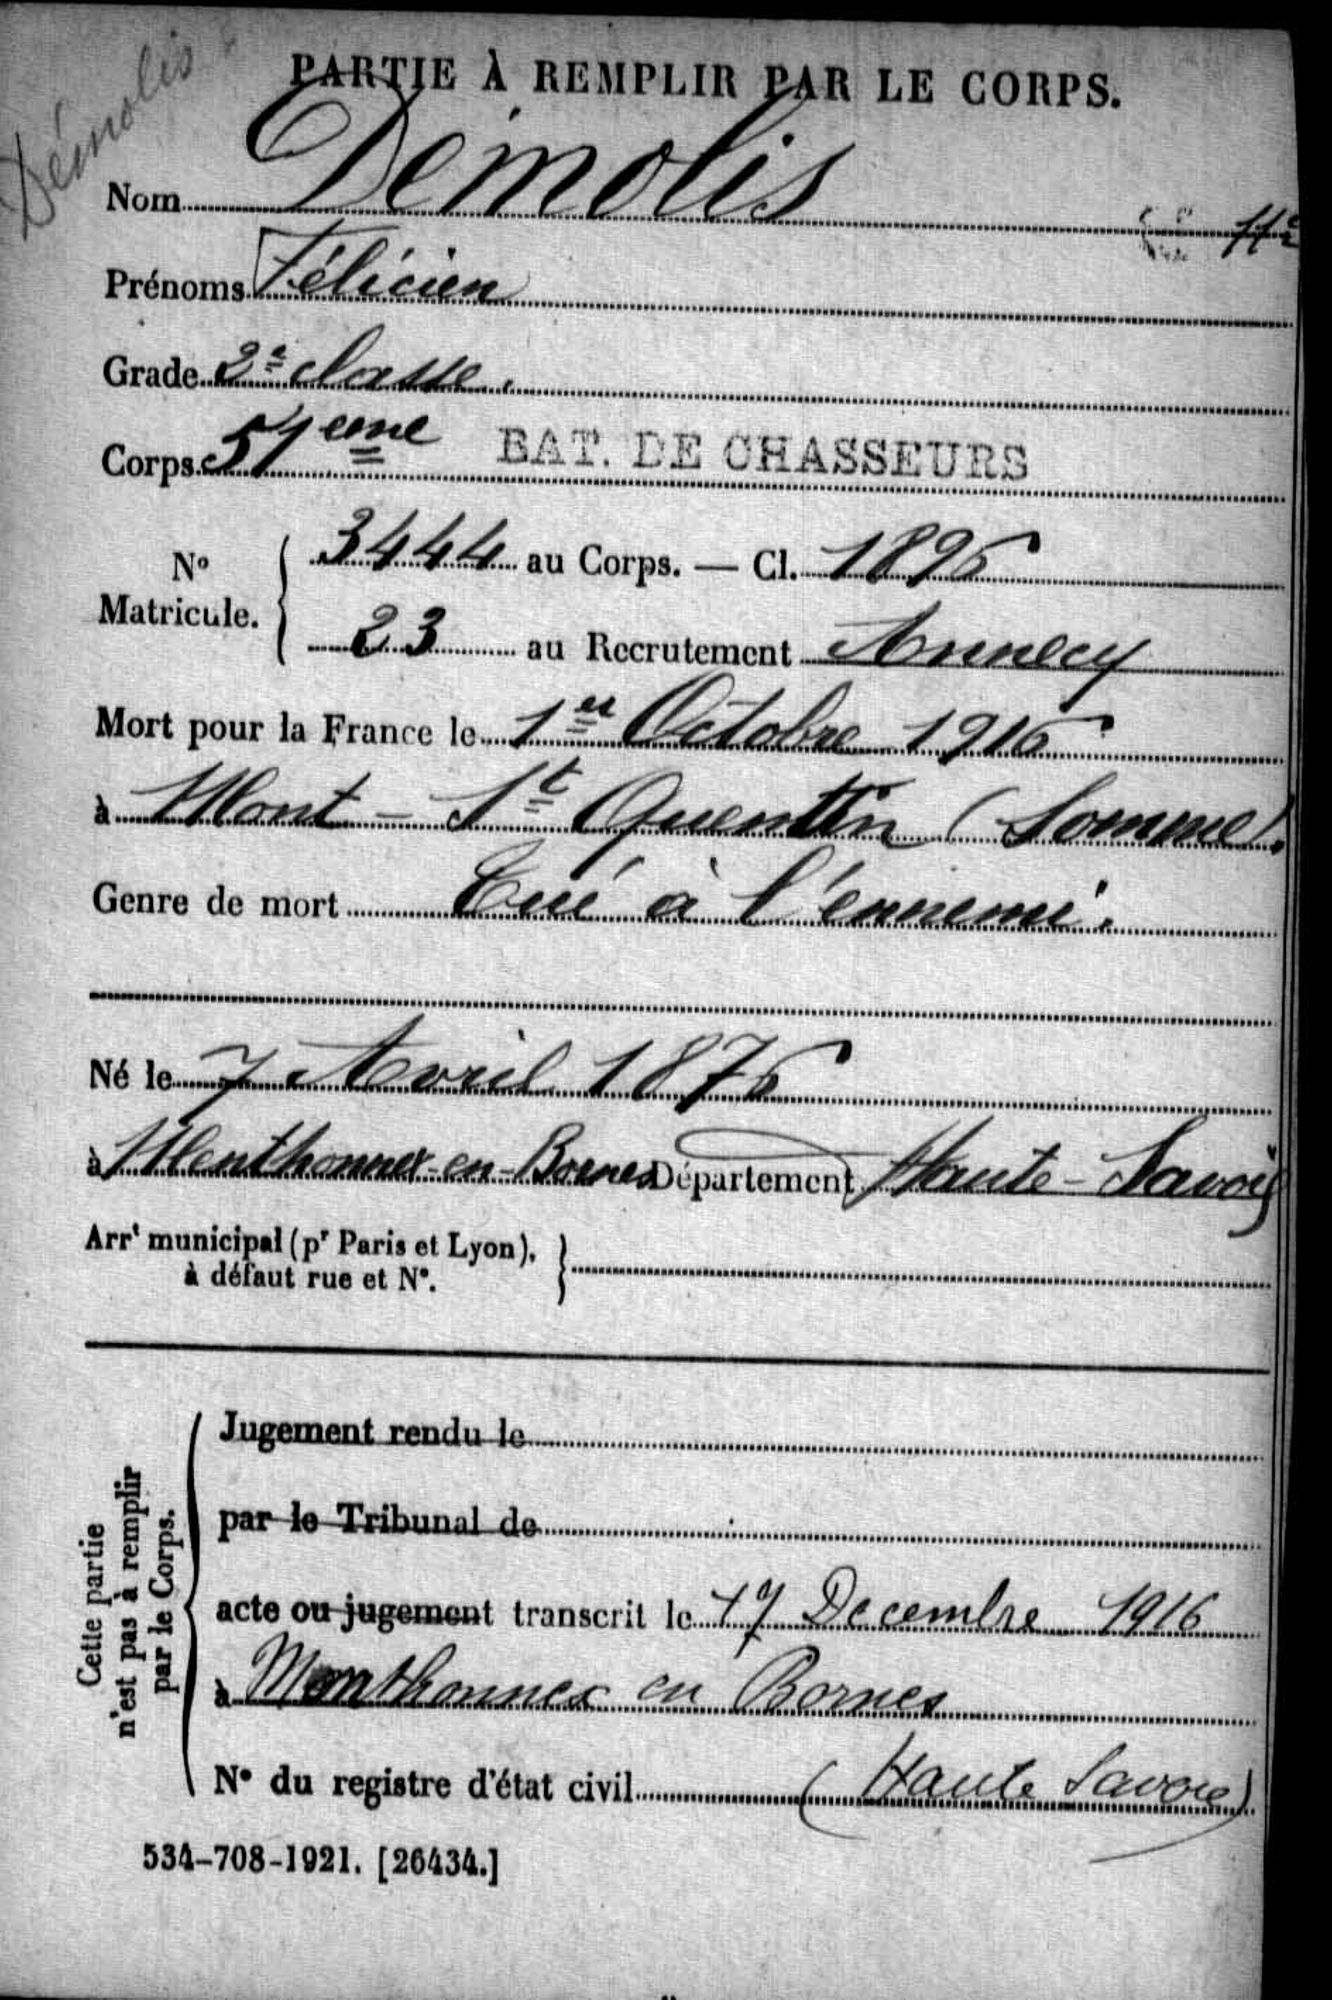 Démolis
PARTIE À REMPLIR PAR LE CORPS.
Nom Démolis
Prénoms Félicien
Grade 2e classe.
Corps 54eme BAT. DE CHASSEURS
No Matricule. 3444 au Corps. — Cl. 1896
23 au Recrutement Annecy
Mort pour la France le 1er Octobre 1916
à Mont-St Quentin (Somme).
Genre de mort Tué à l'ennemi.
Né le 7 Avril 1876
à Menthonnex-en-Bornes Département Haute-Savoie
Arrt municipal (pr Paris et Lyon),
à défaut rue et No.
Cette partie
n'est pas à remplir
par le Corps.
Jugement rendu le
par le Tribunal de
acte ou jugement transcrit le 17 Decembre 1916
à Menthonnex en Bornes
No du registre d'état civil (Haute Savoie)
534-708-1921. [26434.]